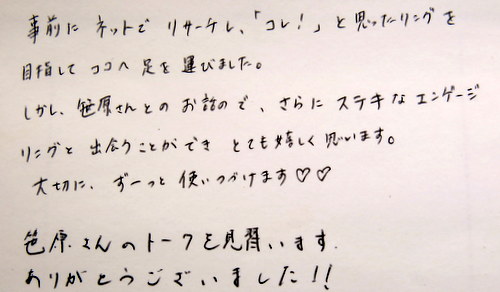 事前に ネットで リサーチし、「コレ！」と思ったリングを
目指して ココへ 足を運びました。
しかし、笹原さんとの お話ので、さらに ステキな エンゲージ
リングと 出会うことができ とても嬉しく思います。
大切に、ずーっと 使いつづけます♡♡
笹原さんのトークを見習います.
ありがとうございました!!